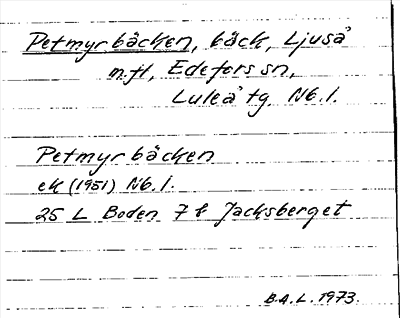 Petmyrbäcken, bäck, Ljuså
m.fl, Edefors sn,
Luleå tg. Nb.l.
Petmyrbäcken
ek (1951) Nb.l.
25 L Boden 7 f Jacksberget
B.A.L. 1973.